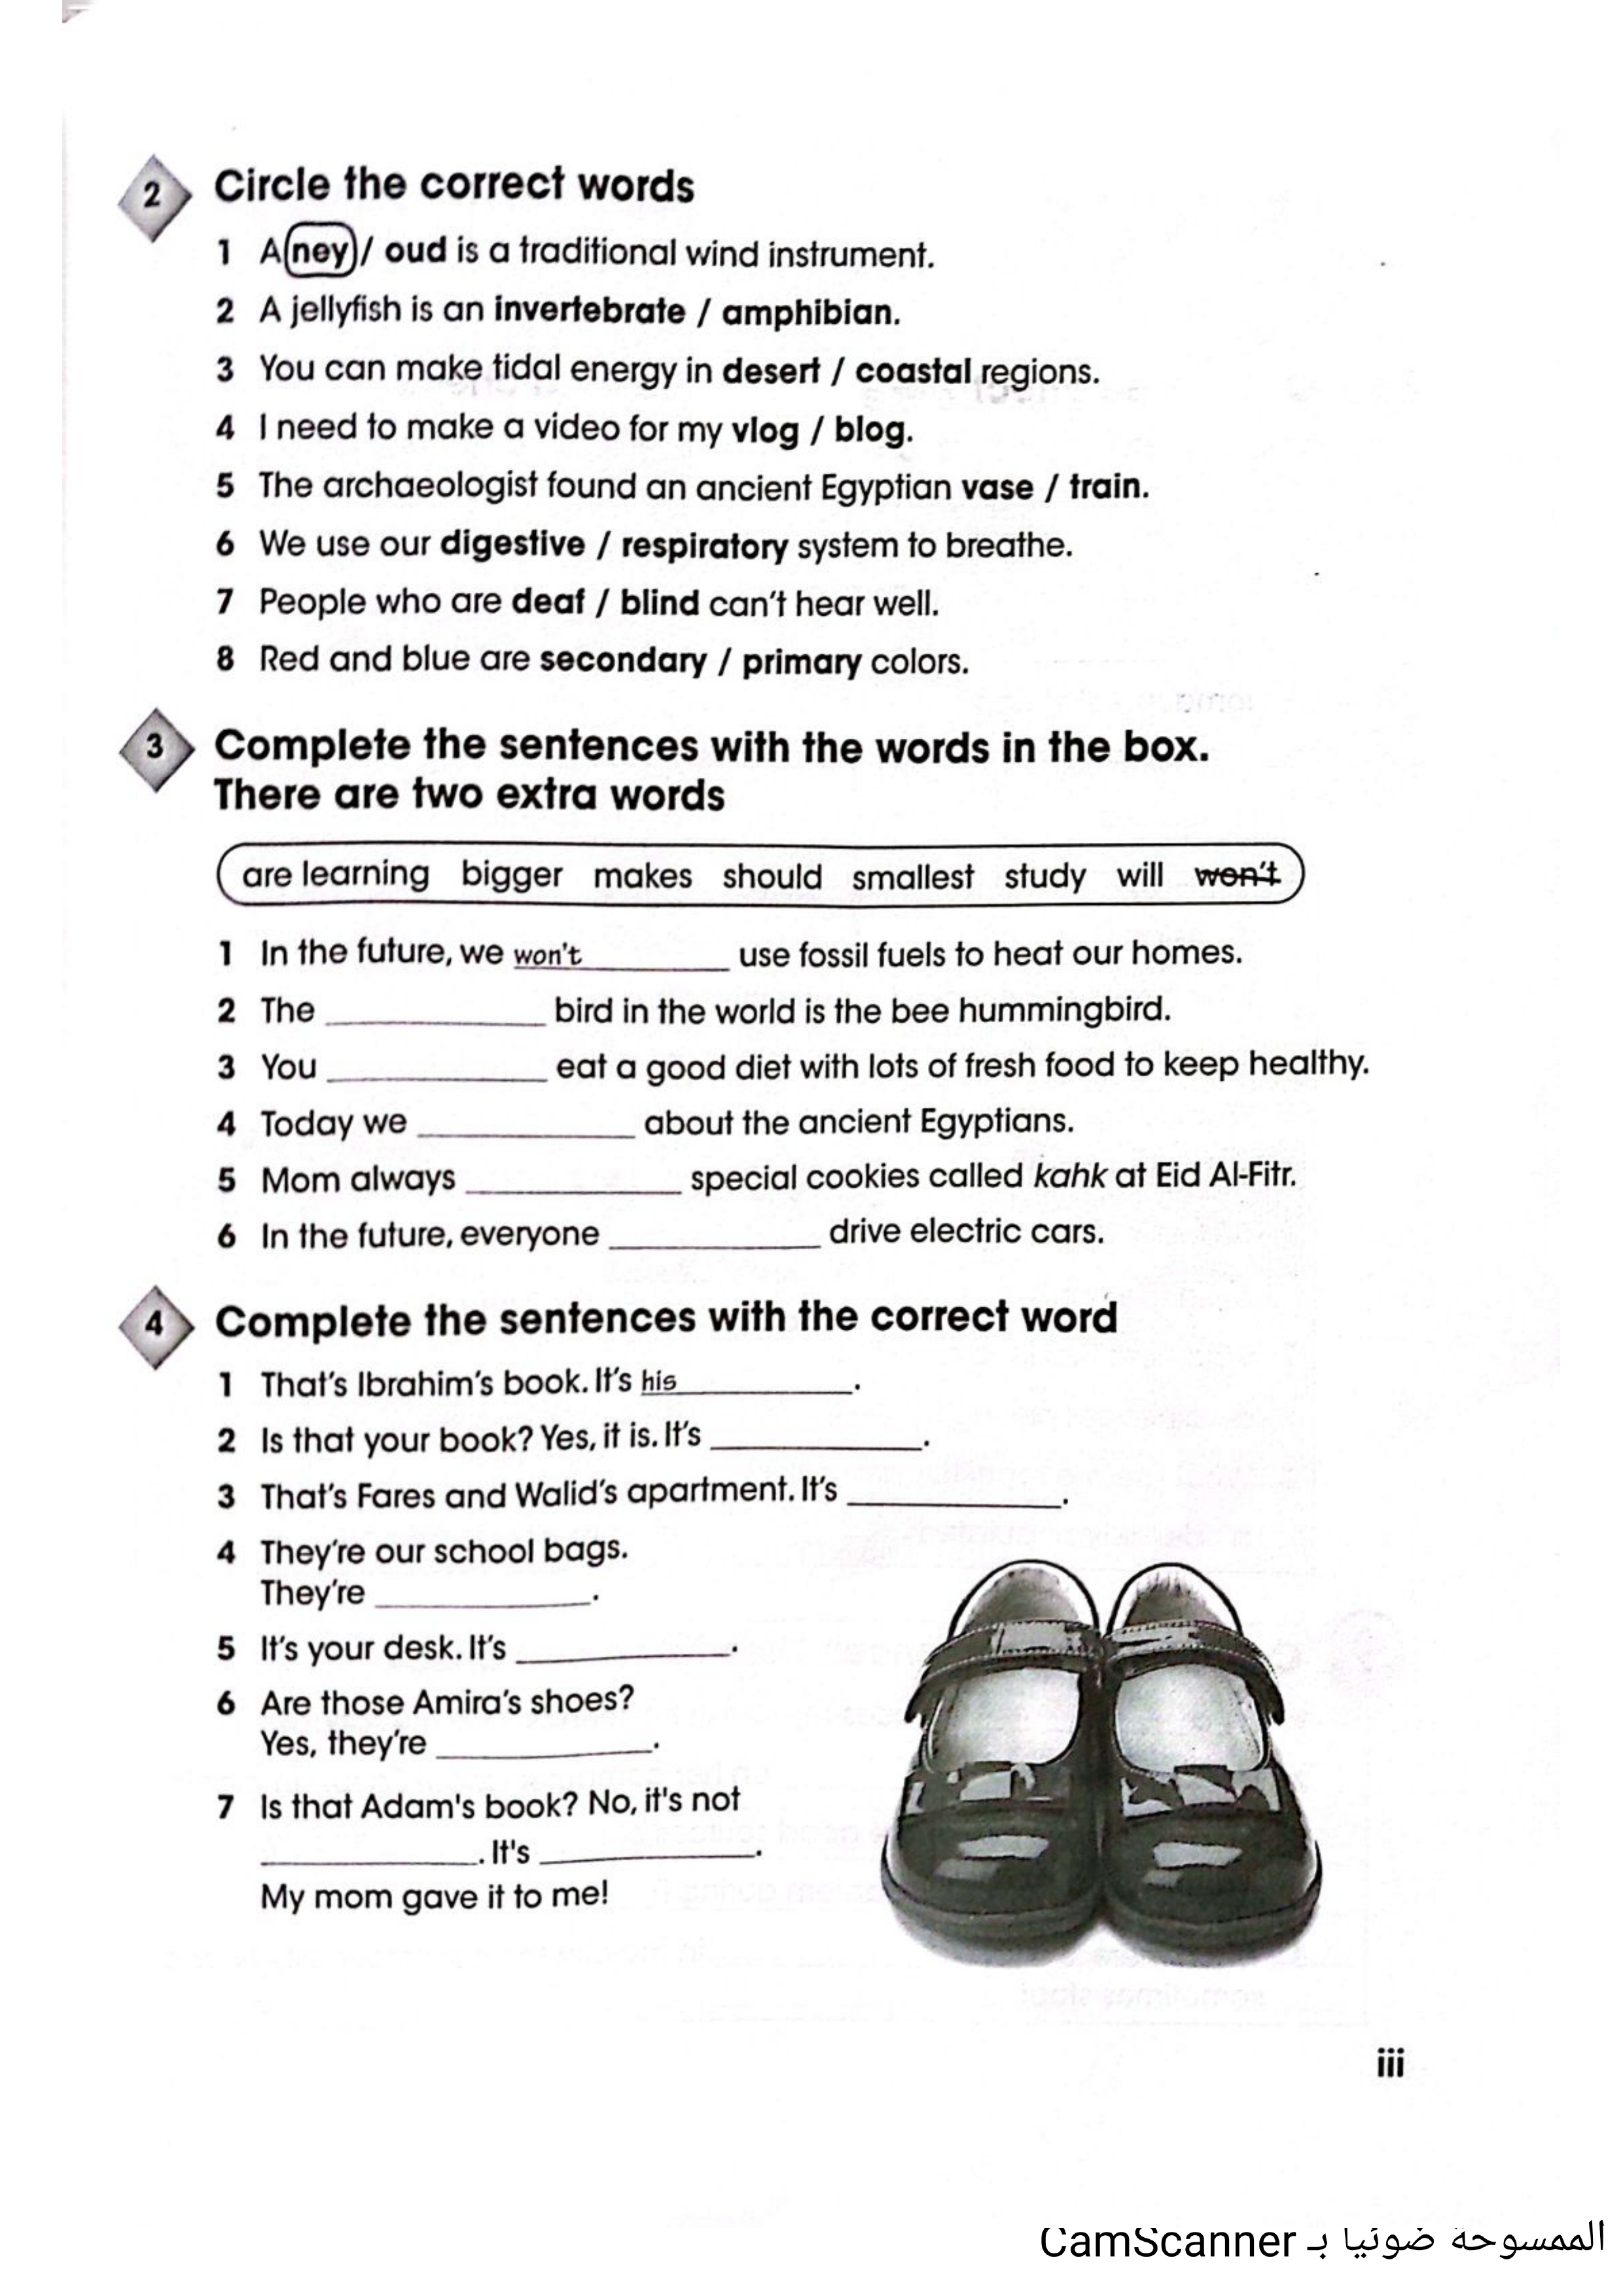 2 Circle the correct words
1 A ney / oud is a traditional wind instrument.
2 A jellyfish is an invertebrate / amphibian.
3 You can make tidal energy in desert / coastal regions.
4 I need to make a video for my vlog / blog.
5 The archaeologist found an ancient Egyptian vase / train.
6 We use our digestive / respiratory system to breathe.
7 People who are deaf / blind can't hear well.
8 Red and blue are secondary / primary colors.
3 Complete the sentences with the words in the box.
There are two extra words
are learning bigger makes should smallest study will won't
1 In the future, we won't__________ use fossil fuels to heat our homes.
2 The __________ bird in the world is the bee hummingbird.
3 You __________ eat a good diet with lots of fresh food to keep healthy.
4 Today we __________ about the ancient Egyptians.
5 Mom always __________ special cookies called kahk at Eid Al-Fitr.
6 In the future, everyone __________ drive electric cars.
4 Complete the sentences with the correct word
1 That's Ibrahim's book. It's his__________.
2 Is that your book? Yes, it is. It's __________.
3 That's Fares and Walid's apartment. It's __________.
4 They're our school bags.
They're __________.
5 It's your desk. It's __________.
6 Are those Amira's shoes?
Yes, they're __________.
7 Is that Adam's book? No, it's not
__________. It's __________.
My mom gave it to me!
iii
الممسوحة ضوئيا بـ CamScanner